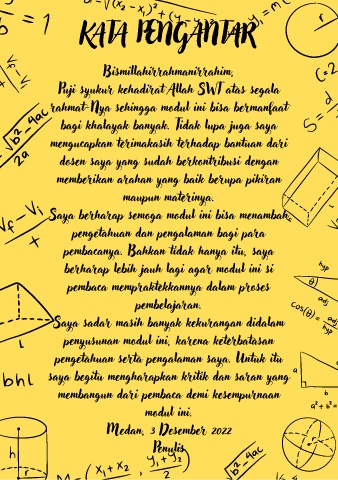 KATA PENGANTAR
Bismillahirrahmanirrahim,
Puji syukur kehadirat Allah SWT atas segala
rahmat-Nya sehingga modul ini bisa bermanfaat
bagi khalayak banyak. Tidak lupa juga saya
mengucapkan terimakasih terhadap bantuan dari
dosen saya yang sudah berkontribusi dengan
memberikan arahan yang baik berupa pikiran
maupun materinya.
Saya berharap semoga modul ini bisa menambah
pengetahuan dan pengalaman bagi para
pembacanya. Bahkan tidak hanya itu, saya
berharap lebih jauh lagi agar modul ini si
pembaca mempraktekkannya dalam proses
pembelajaran.
Saya sadar masih banyak kekurangan didalam
penyusunan modul ini, karena keterbatasan
pengetahuan serta pengalaman saya. Untuk itu
saya begitu mengharapkan kritik dan saran yang
membangun dari pembaca demi kesempurnaan
modul ini.
Medan, 3 Desember 2022
Penulis
b² - 4ac
2a
Vf - Vi
bhl
h
r
hyp
adj